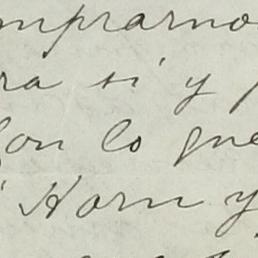 mprarno
ra si y
Con lo que
Horn y